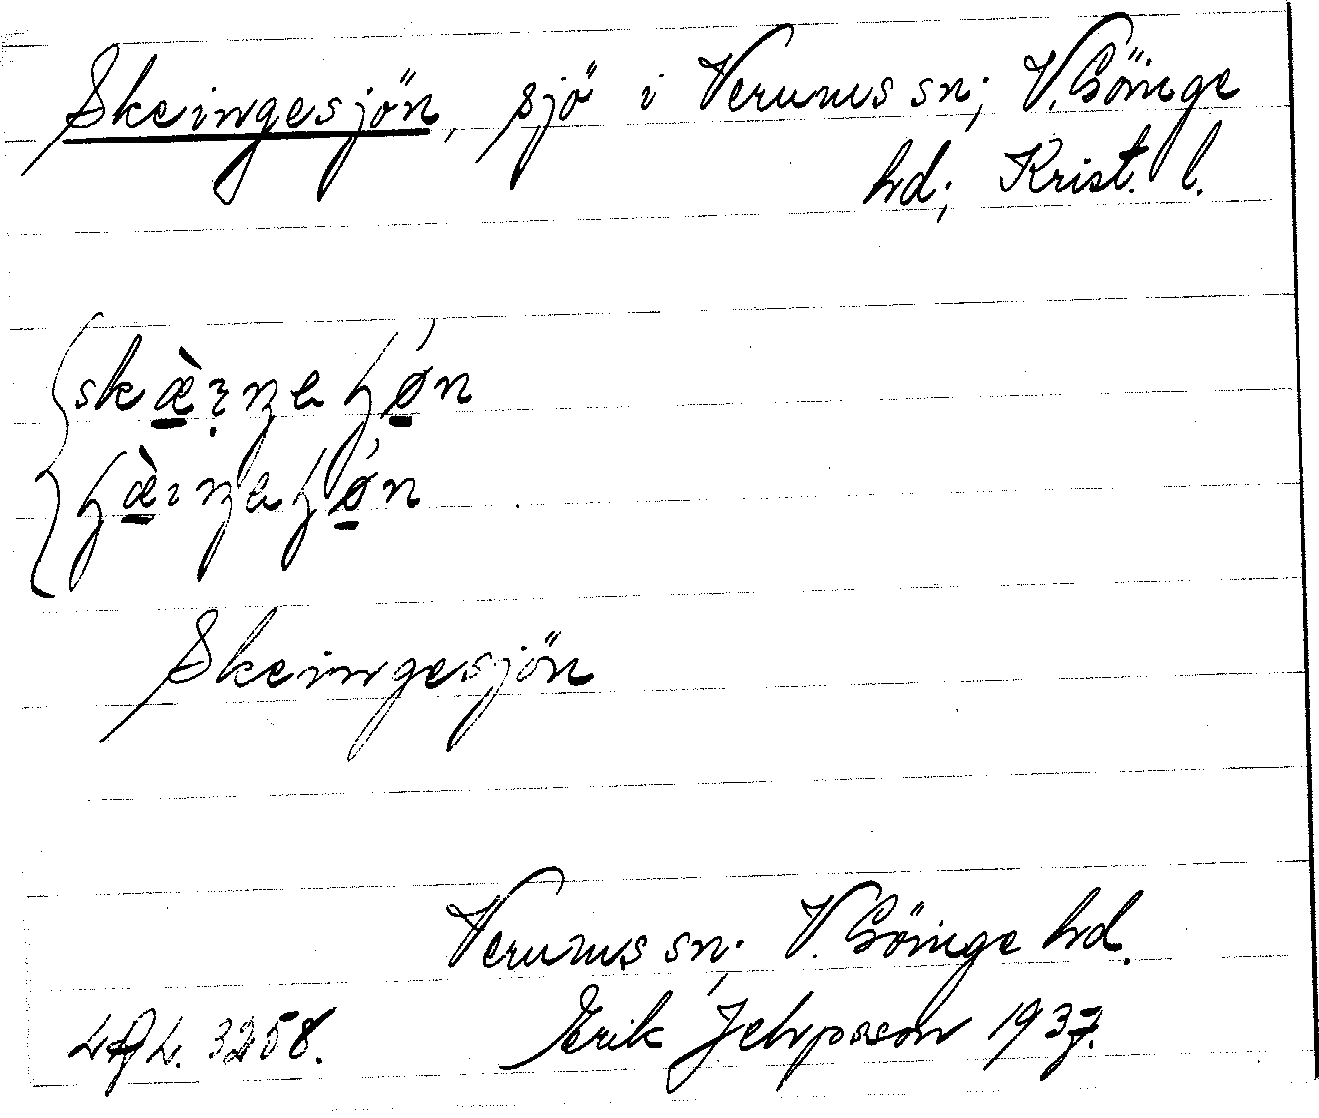 Skeingesjön, sjö i Verums sn; V. Göinge
hd; Krist. l.
Skeingesjön
Verums sn; V. Göinge hd.
LAL. 3258. Erik Jeppsson 1937.